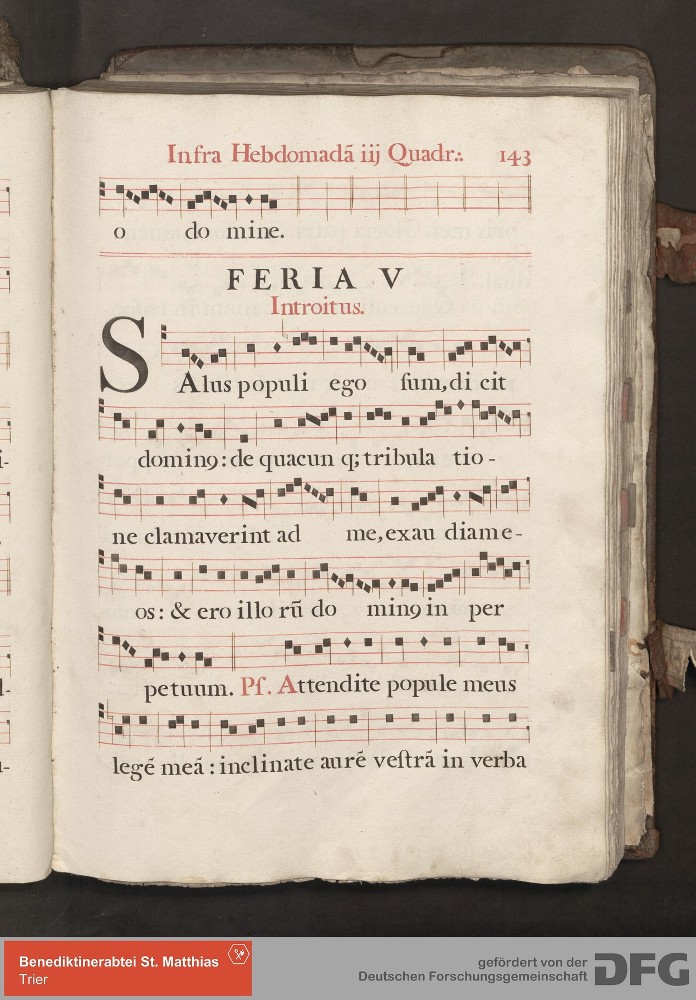 Infra Hebdomadã iij Quadr:. 143
o do mine.
FERIA V
Introitus.
SAlus populi ego ſum, di cit
dominꝯ: de quacun q; tribula tio-
ne clamaverint ad me, exau diame-
os: & ero illo rū do minꝯ in per
petuum. Pſ. Attendite popule meus
legẽ meã: inclinate aurẽ veſtrã in verba
i-
l-
Benediktinerabtei St. Matthias
Trier
gefördert von der
Deutschen Forschungsgemeinschaft
DFG